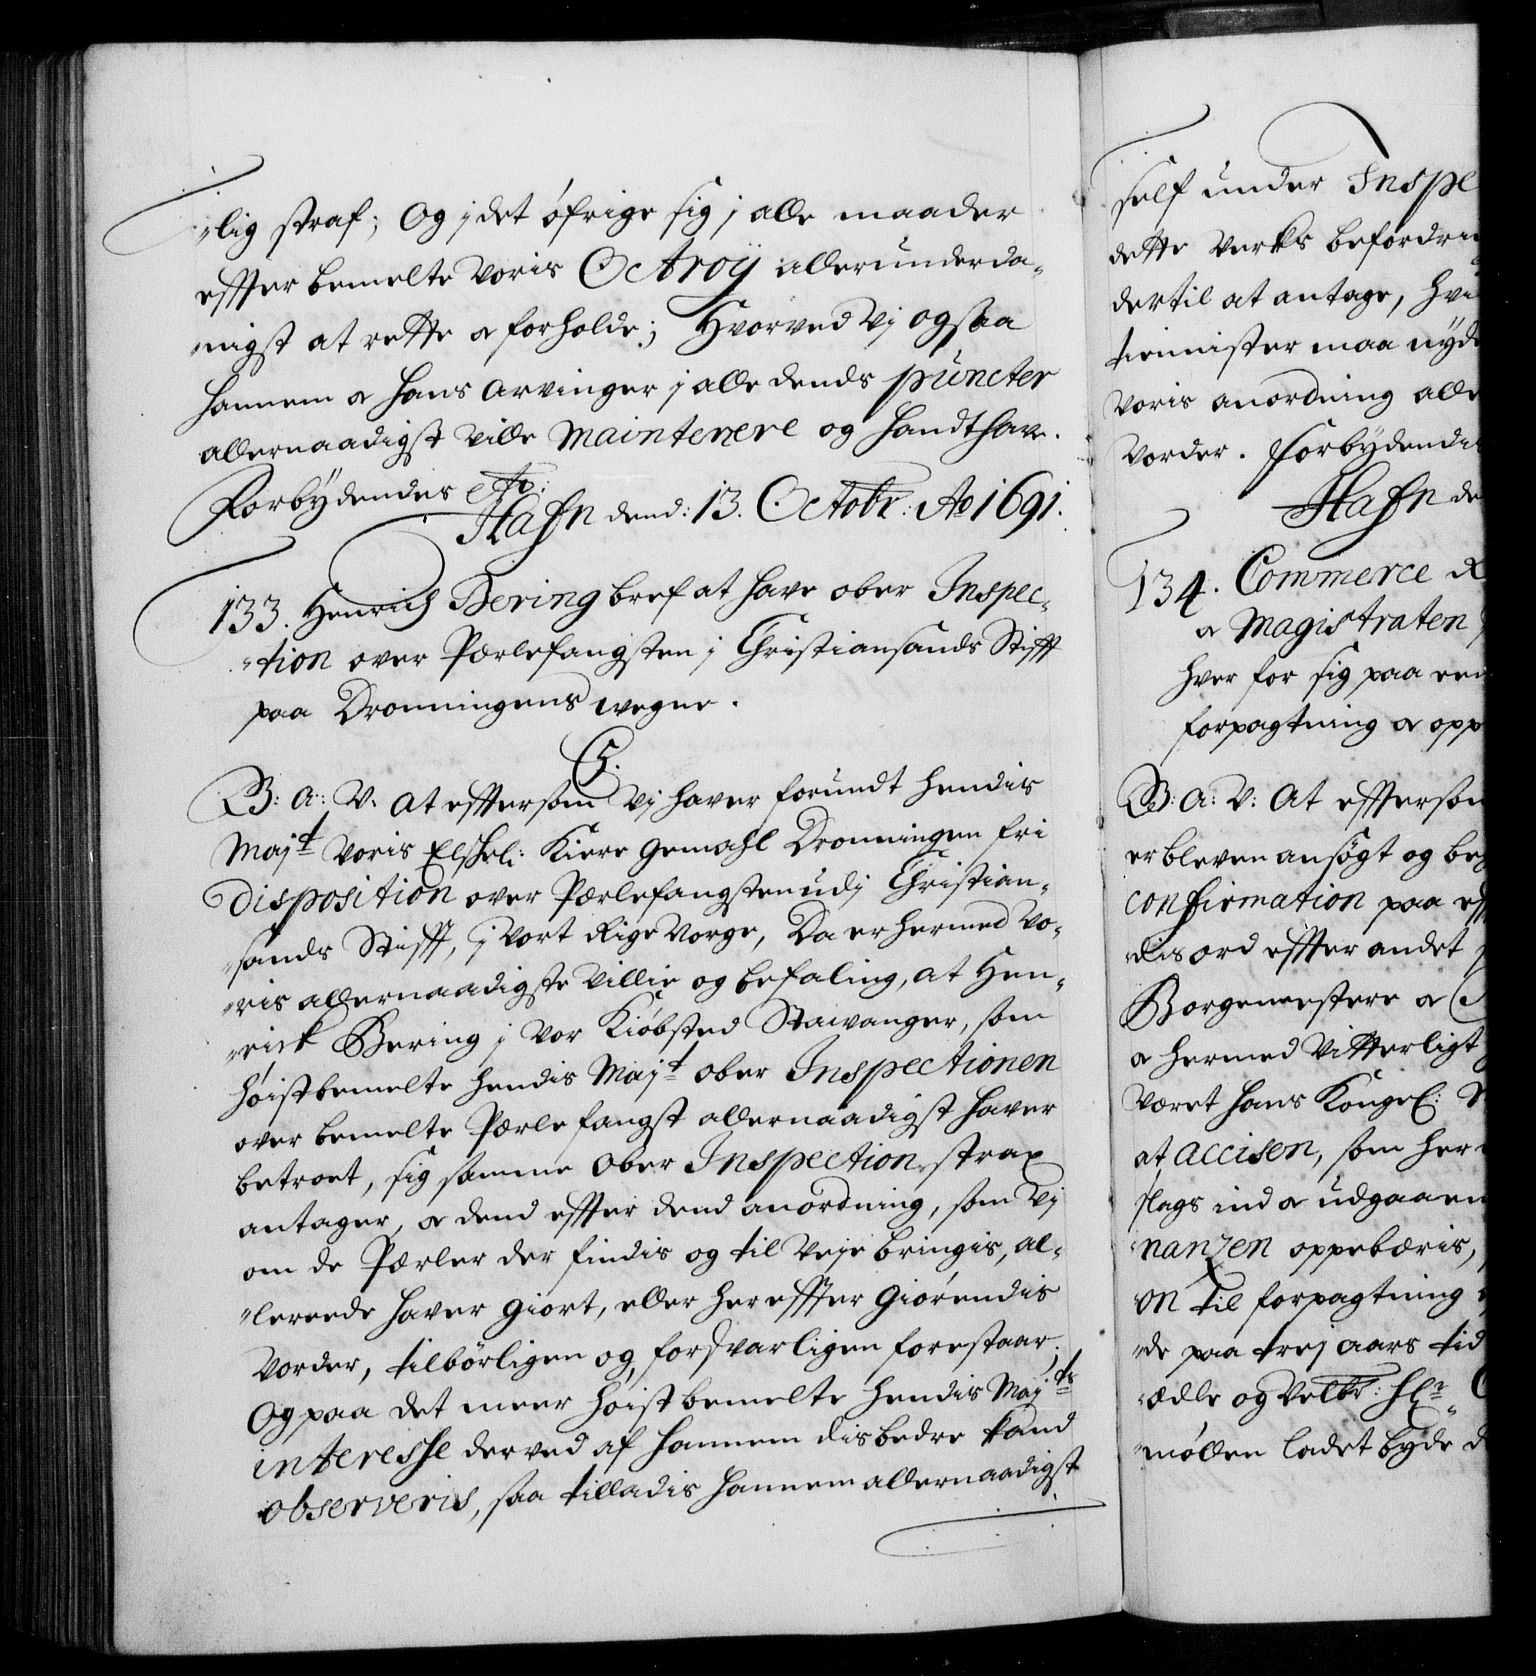 "lig straf; Og j det öfrige sig j alle maader
effter bemelte Voris Octroÿ allerunderda-
"nigst at rette & forholde; Hvorved Vj ogsaa
hannem & hans Arvinger j alle dends puncter
allernaadigst ville maintenere og handthave.
Forbÿdendes etc:
Hafn dend: 13. Octobr: Ao 1691.
133. Henrich Bering bref at have ober Inspec-
"tion over Pærlefangsten j Christiansands Stifft
paa Dronningens wegne.
C5.
G: A: V. At efftersom Vj haver forundt hendis
Majt Voris Elskel: Kiere Gemahl Dronningen fri
disposition over Pærlefangsten udj Christian-
"sands Stifft, j Vort Rige Norge, Da er hermed Vo-
"ris allernaadigste Villie og befaling, at Hen-
"rick Bering j Vor Kiöbsted Stawanger, som
höistbemelte hendis Majt ober Inspectionen
over bemelte Pærlefangst allernaadigst haver
betroet, sig samme Ober Inspection strax
antager, & dend effter dend anordning, som Vj
om de Pærler der findis og til Veje bringis, al-
"lereede haver giort, eller her effter giörendis
Vorder, tilbörligen og forsvarligen forestaar;
Og paa det meer höistbemelte hendis Majts
interesse derved af hannem disbedre kand
observeris, saa tilladis hannem allernaadigst
self under Inspe
dette Verks befordri
dertil at antage, hvi
tiennister maa nÿde
Voris anordning alle
Vorder. Forbÿdendis
Hafn de
134. Commerce R
& Magistraten
hver for sig paa een
forpagtning & opp
G: A: V: At effterson
er bleven ansögt og beg
confirmation paa eff
"dis ord effter andet
Borgemestere &
& hermed Vitterligt
Været hans Kongel: M
at Accisen, som her
slags ind & udgaaen
"nanzen oppebæris,
on til forpagtning
"de paa trej aars tid
"ædle og Velbr: Hr
"möllen ladet byde d